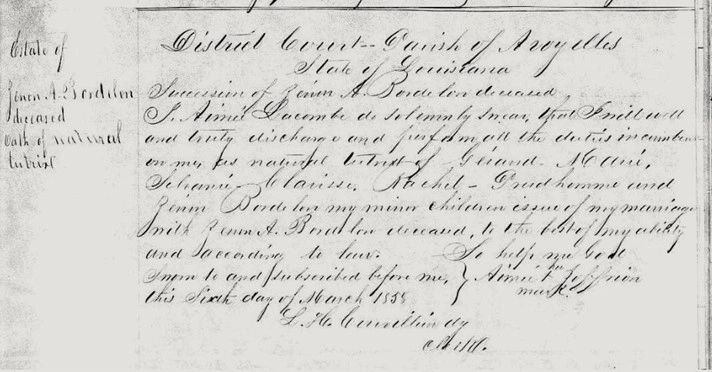 Estate of
Zenon A. Bordelon
deceased
Oath of natural
tutrix
District Court - Parish of Avoyelles
State of Louisiana
Succession of Zenon A. Bordelon deceased
I, Aimée Lacombe do solemnly swear, that I will well
and truly discharge and perform all the duties incumbent
on me, as natural tutrix of Gérand - Marie,
Clarisse, Rachel - Prudhomme and
Zenon Bordelon my minor children issue of my marriage
with Zenon A. Bordelon deceased, to the best of my ability
and according to law. So help me God
Sworn to and subscribed before me, Aimée
this Sixth day of March mark
L. H. Couvillion dy
Clerk.